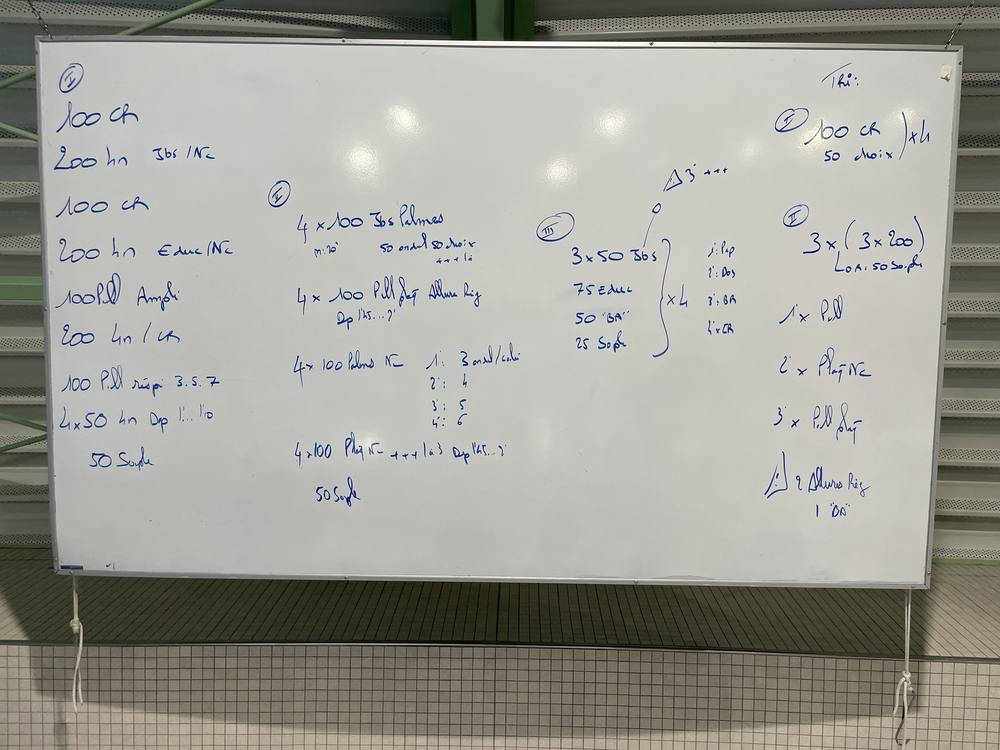 I
100 CR
200 4n Jbs / NC
100 CR
200 4n Educ/NC
100 Pull Ampli
200 4n / CR
100 Pull respi 3.5.7
4x50 4n Dep 1'... 1'10
50 Souple
II
4 x 100 Jbs Palmes
m: 20"
50 ondul 50 choix
+++ 1à
4 x 100 Pull plaq Allure Rég
Dep 1'45...2'
4x100 Palmes NC
1°: 3 ondul/coulée
2°: 4
3°: 5
4°: 6
4x100 Plaq NC +++ 1 à 3 Dep 1'45...2'
50 Souple
III
⚠ 3° +++
3x50 Jbs
75 Educ
50 "BA"
25 Souple
x4
1°: Pap
2°: Dos
3°: BA
4°: CR
Tri:
I
100 CR
50 choix
x4
II
3 x (3x200)
50 Souple
1° x Pull
2° x Plaq NC
3° x Pull plaq
⚠ 2 Allure Rég
1 "BA"